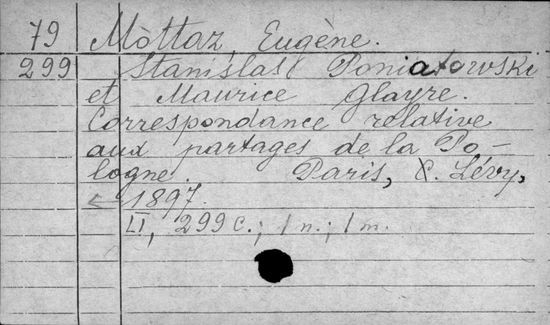 79 Mòttaz, Eugène.
299 Stanislas Poniatowski
et Maurice Glayre.
Correspondance relative
aux partages de la Po-
logne. Paris, C. Lévy,
1897.
LI, 299 c.; 1 п.; 1 т.